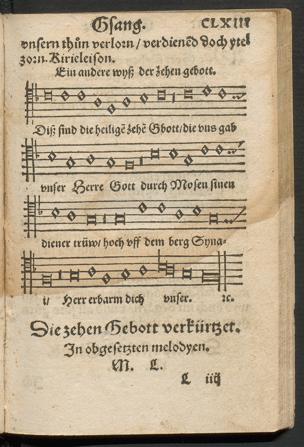 Gsang. CLXIII
vnsern thůn verlorn / verdienēd doch ytel
zorn. Kirieleison.
Ein andere wyß der zehen gebott.
Diß sind die heiligē zehē Gbott / die vns gab
vnser Herre Gott durch Mosen sinen
diener trüw / hoch vff dem berg Syna-
i / Herr erbarm dich vnser. ꝛc.
Die zehen Gebott verkürtzet.
In obgesetzten melodyen.
M. L.
L iiij